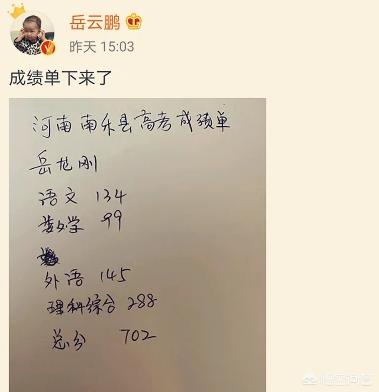 岳云鹏
昨天 15:03
成绩单下来了
河南南乐县高考成绩单
岳龙刚
语文 134
数学 99
外语 145
理科综合 288
总分 702
悟空问答